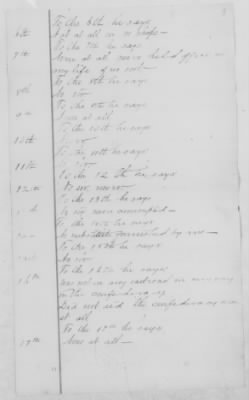 To the 6th he says
6th
Not at all in no shape—
To the 7th he says
7th
None at all never held office in
my life of no sort—
To the 8th he says
8th
No sir
To the 9th he says
9th
None at all
To the 10th he says
10th
No sir
To the 11th he says
11th
No sir
To the 12th he says
12th
No sir never
To the 13th he says
No sir never
To the 14th he says
No substitute furnished by me—
To the 15th he says
No sir
To the 16th he says
16th
Was not in any
in the confederacy
Did not aid the confederacy
at all
To the 17th he says
17th
None at all—